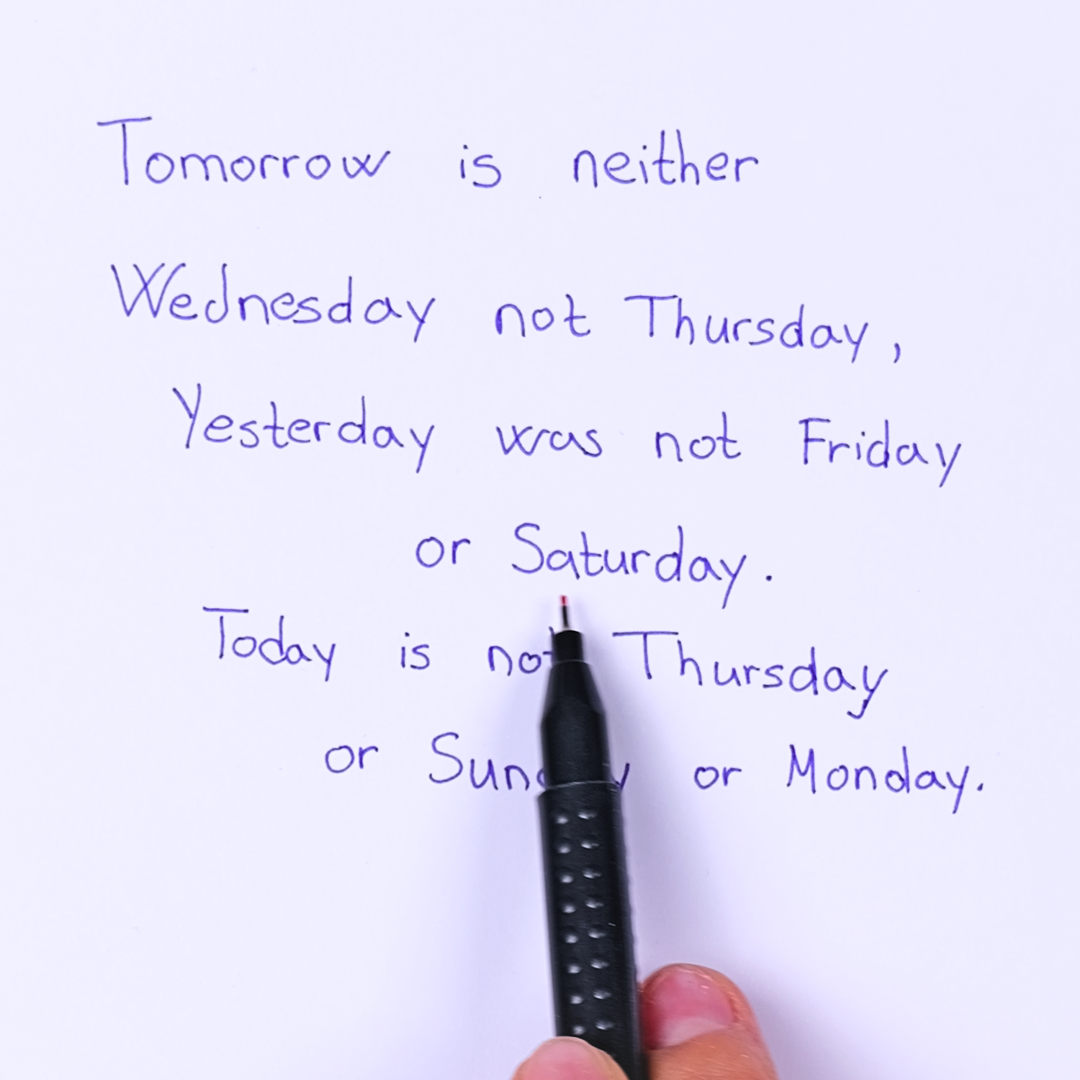 Tomorrow is neither
Wednesday not Thursday,
Yesterday was not Friday
or Saturday.
Today is not Thursday
or Sunday or Monday.